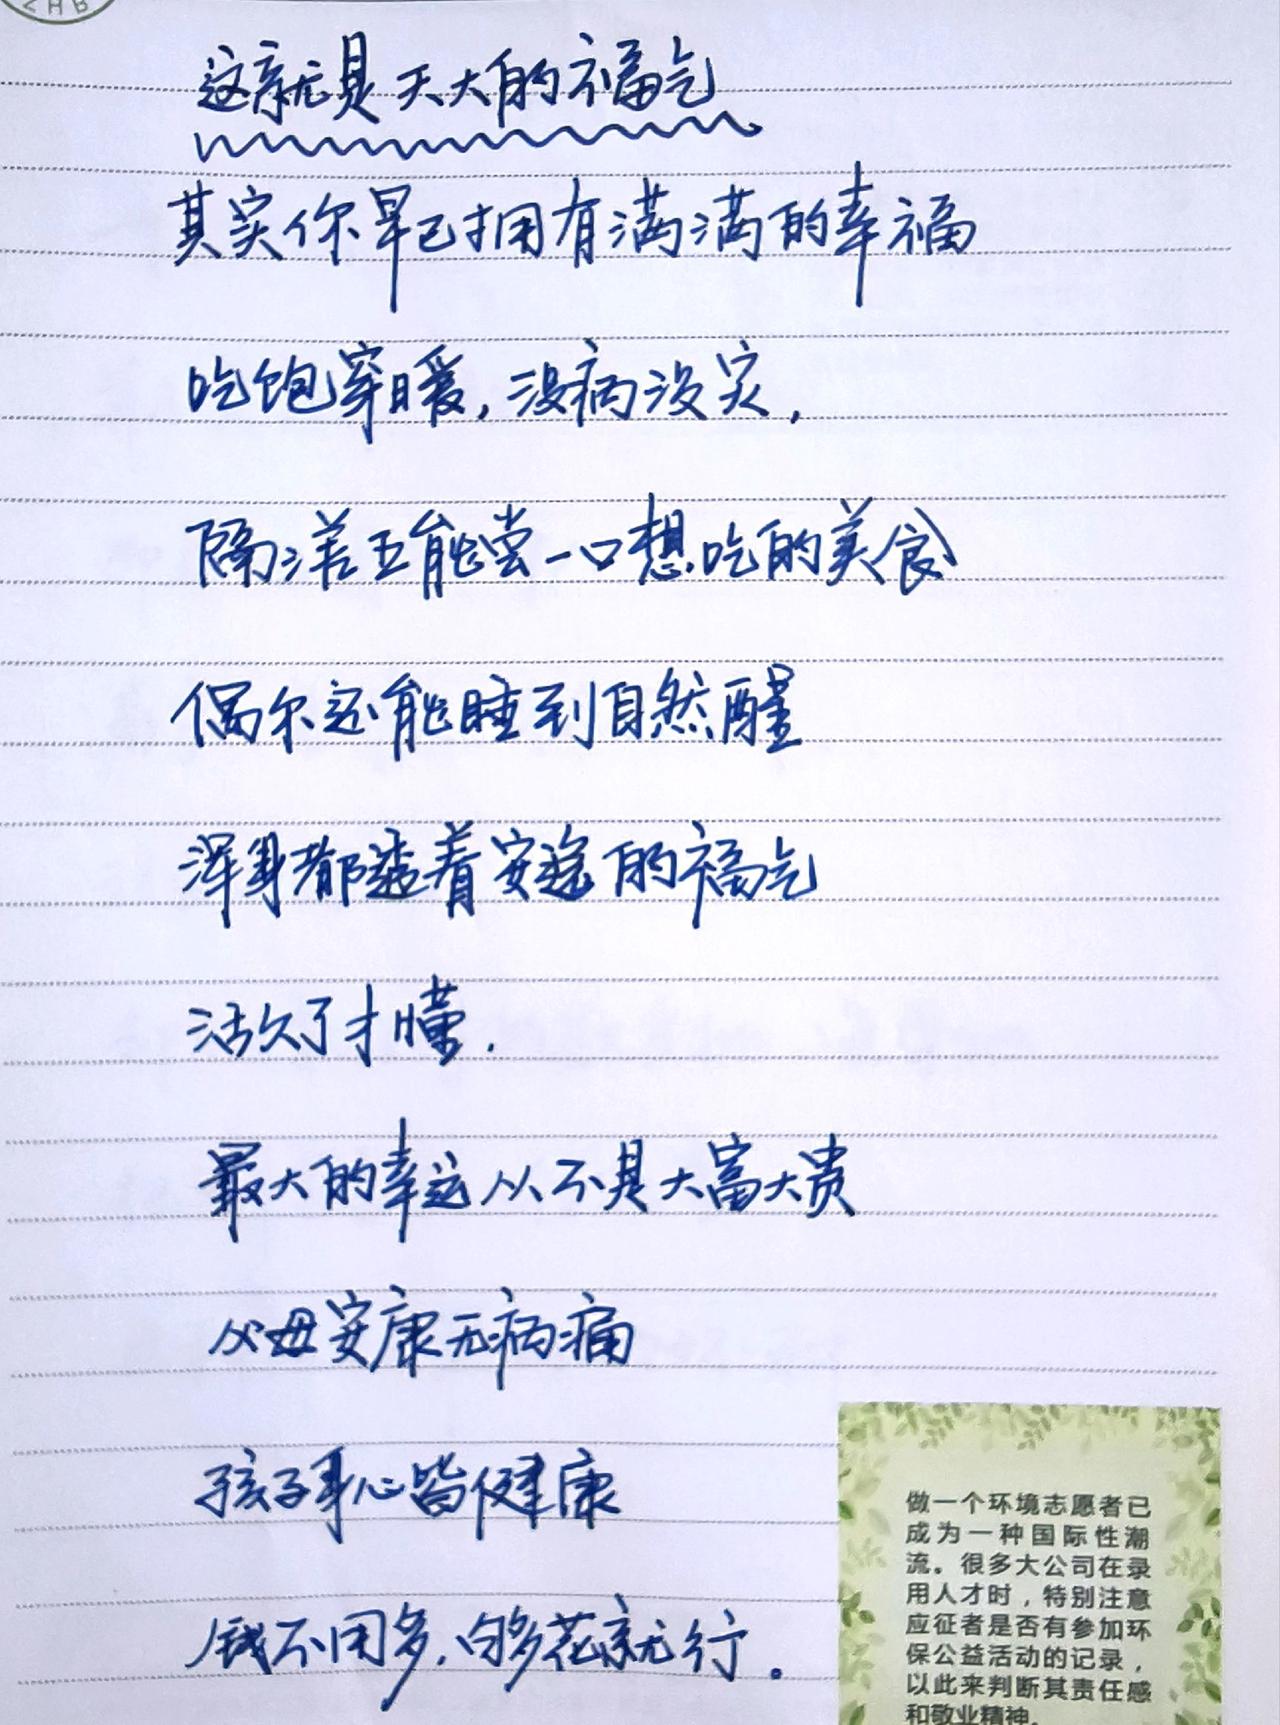 这就是天大的福气
其实你早已拥有满满的幸福
吃饱穿暖，没病没灾，
隔三差五能尝一口想吃的美食
偶尔还能睡到自然醒
浑身都透着安逸的福气
活久了才懂.
最大的幸运从不是大富大贵
父母安康无病痛
孩子身心皆健康
钱不用多，够花就行。
做一个环境志愿者已
成为一种国际性潮
流。很多大公司在录
用人才时，特别注意
应征者是否有参加环
保公益活动的记录，
以此来判断其责任感
和敬业精神。